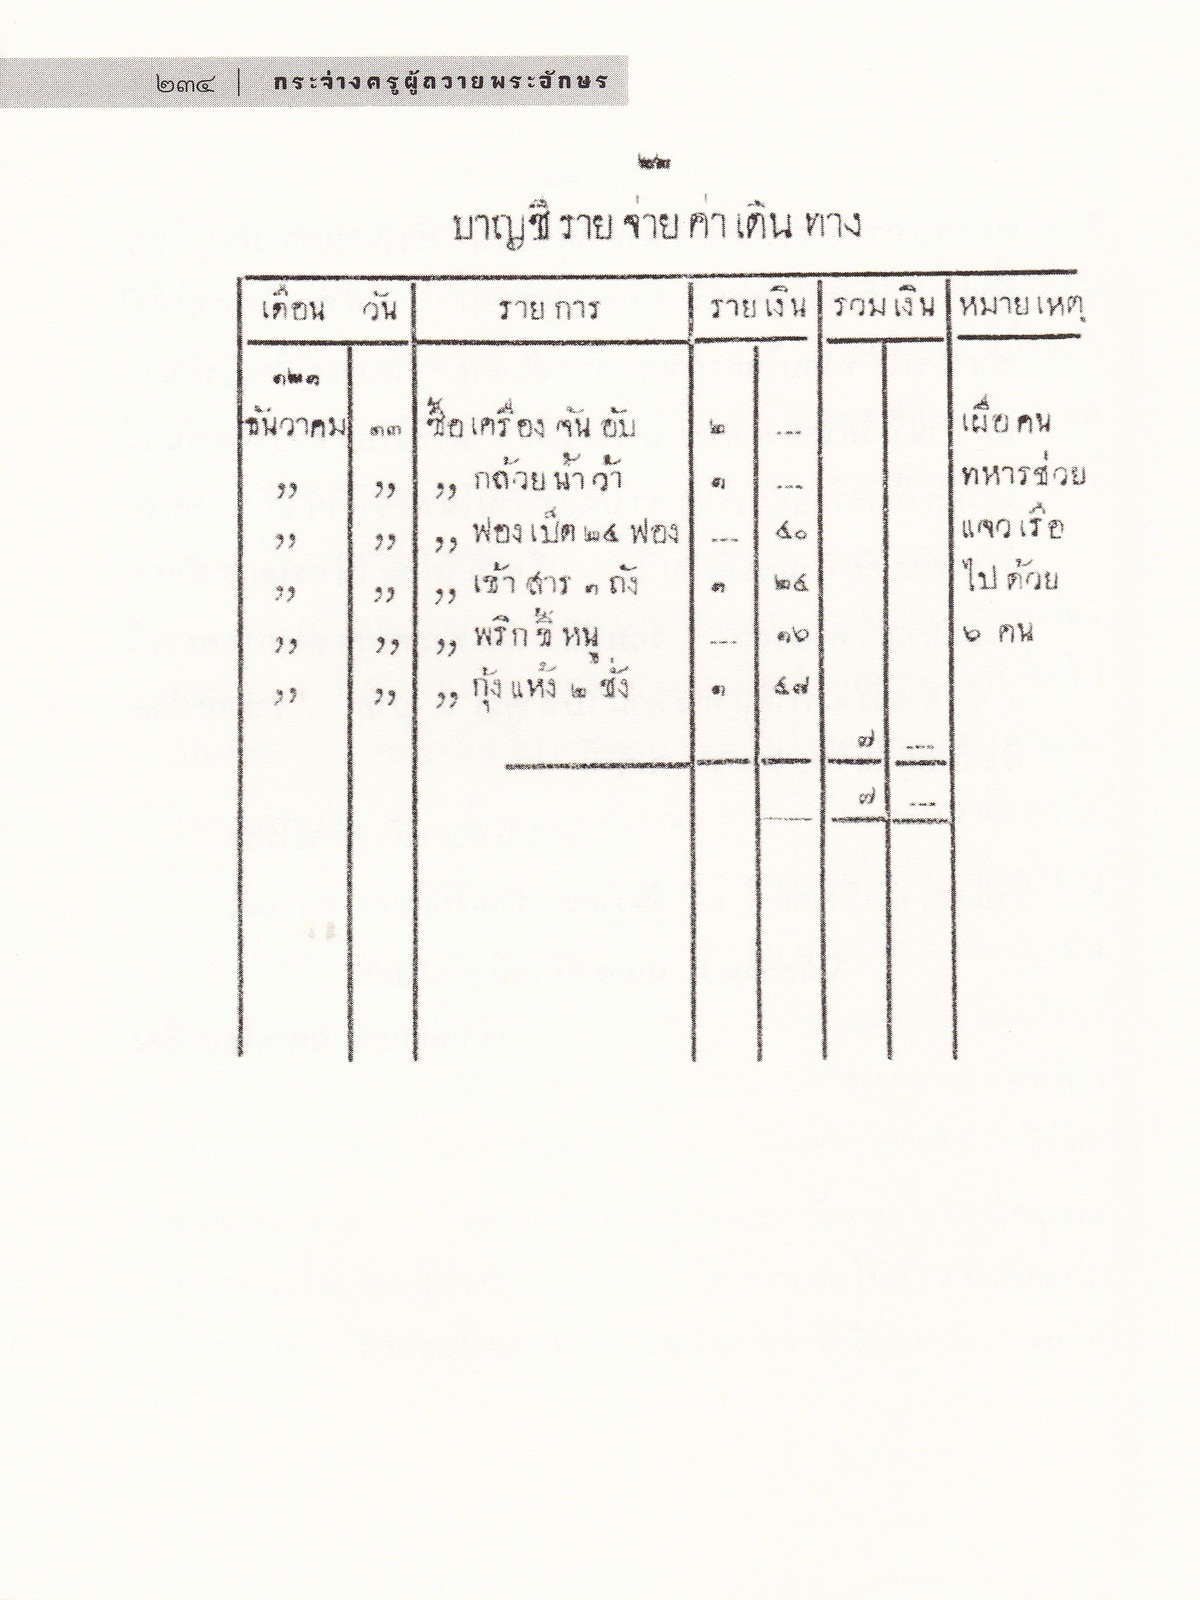 ๒๓๔ | กระจ่างครูผู้ถวายพระอักษร
บาญชี ราย จ่าย ค่า เดิน ทาง
เดือน วัน ราย การ ราย เงิน รวม เงิน หมาย เหตุ
๑๒๑
ธันวาคม ๑๓ ซื้อ เครื่อง จัน อับ ๒ --- เผื่อ คน
,, ,, ,, กล้วย น้ำ ว้า ๑ --- ทหาร ช่วย
,, ,, ,, ฟอง เป็ด ๒๕ ฟอง --- ๔๐ แจว เรือ
,, ,, ,, เข้า สาร ๑ ถัง ๑ ๒๕ ไป ด้วย
,, ,, ,, พริก ขี้ หนู --- ๑๖ ๖ คน
,, ,, ,, กุ้ง แห้ง ๒ ชั่ง ๑ ๔๗
๗ ---
๗ ---